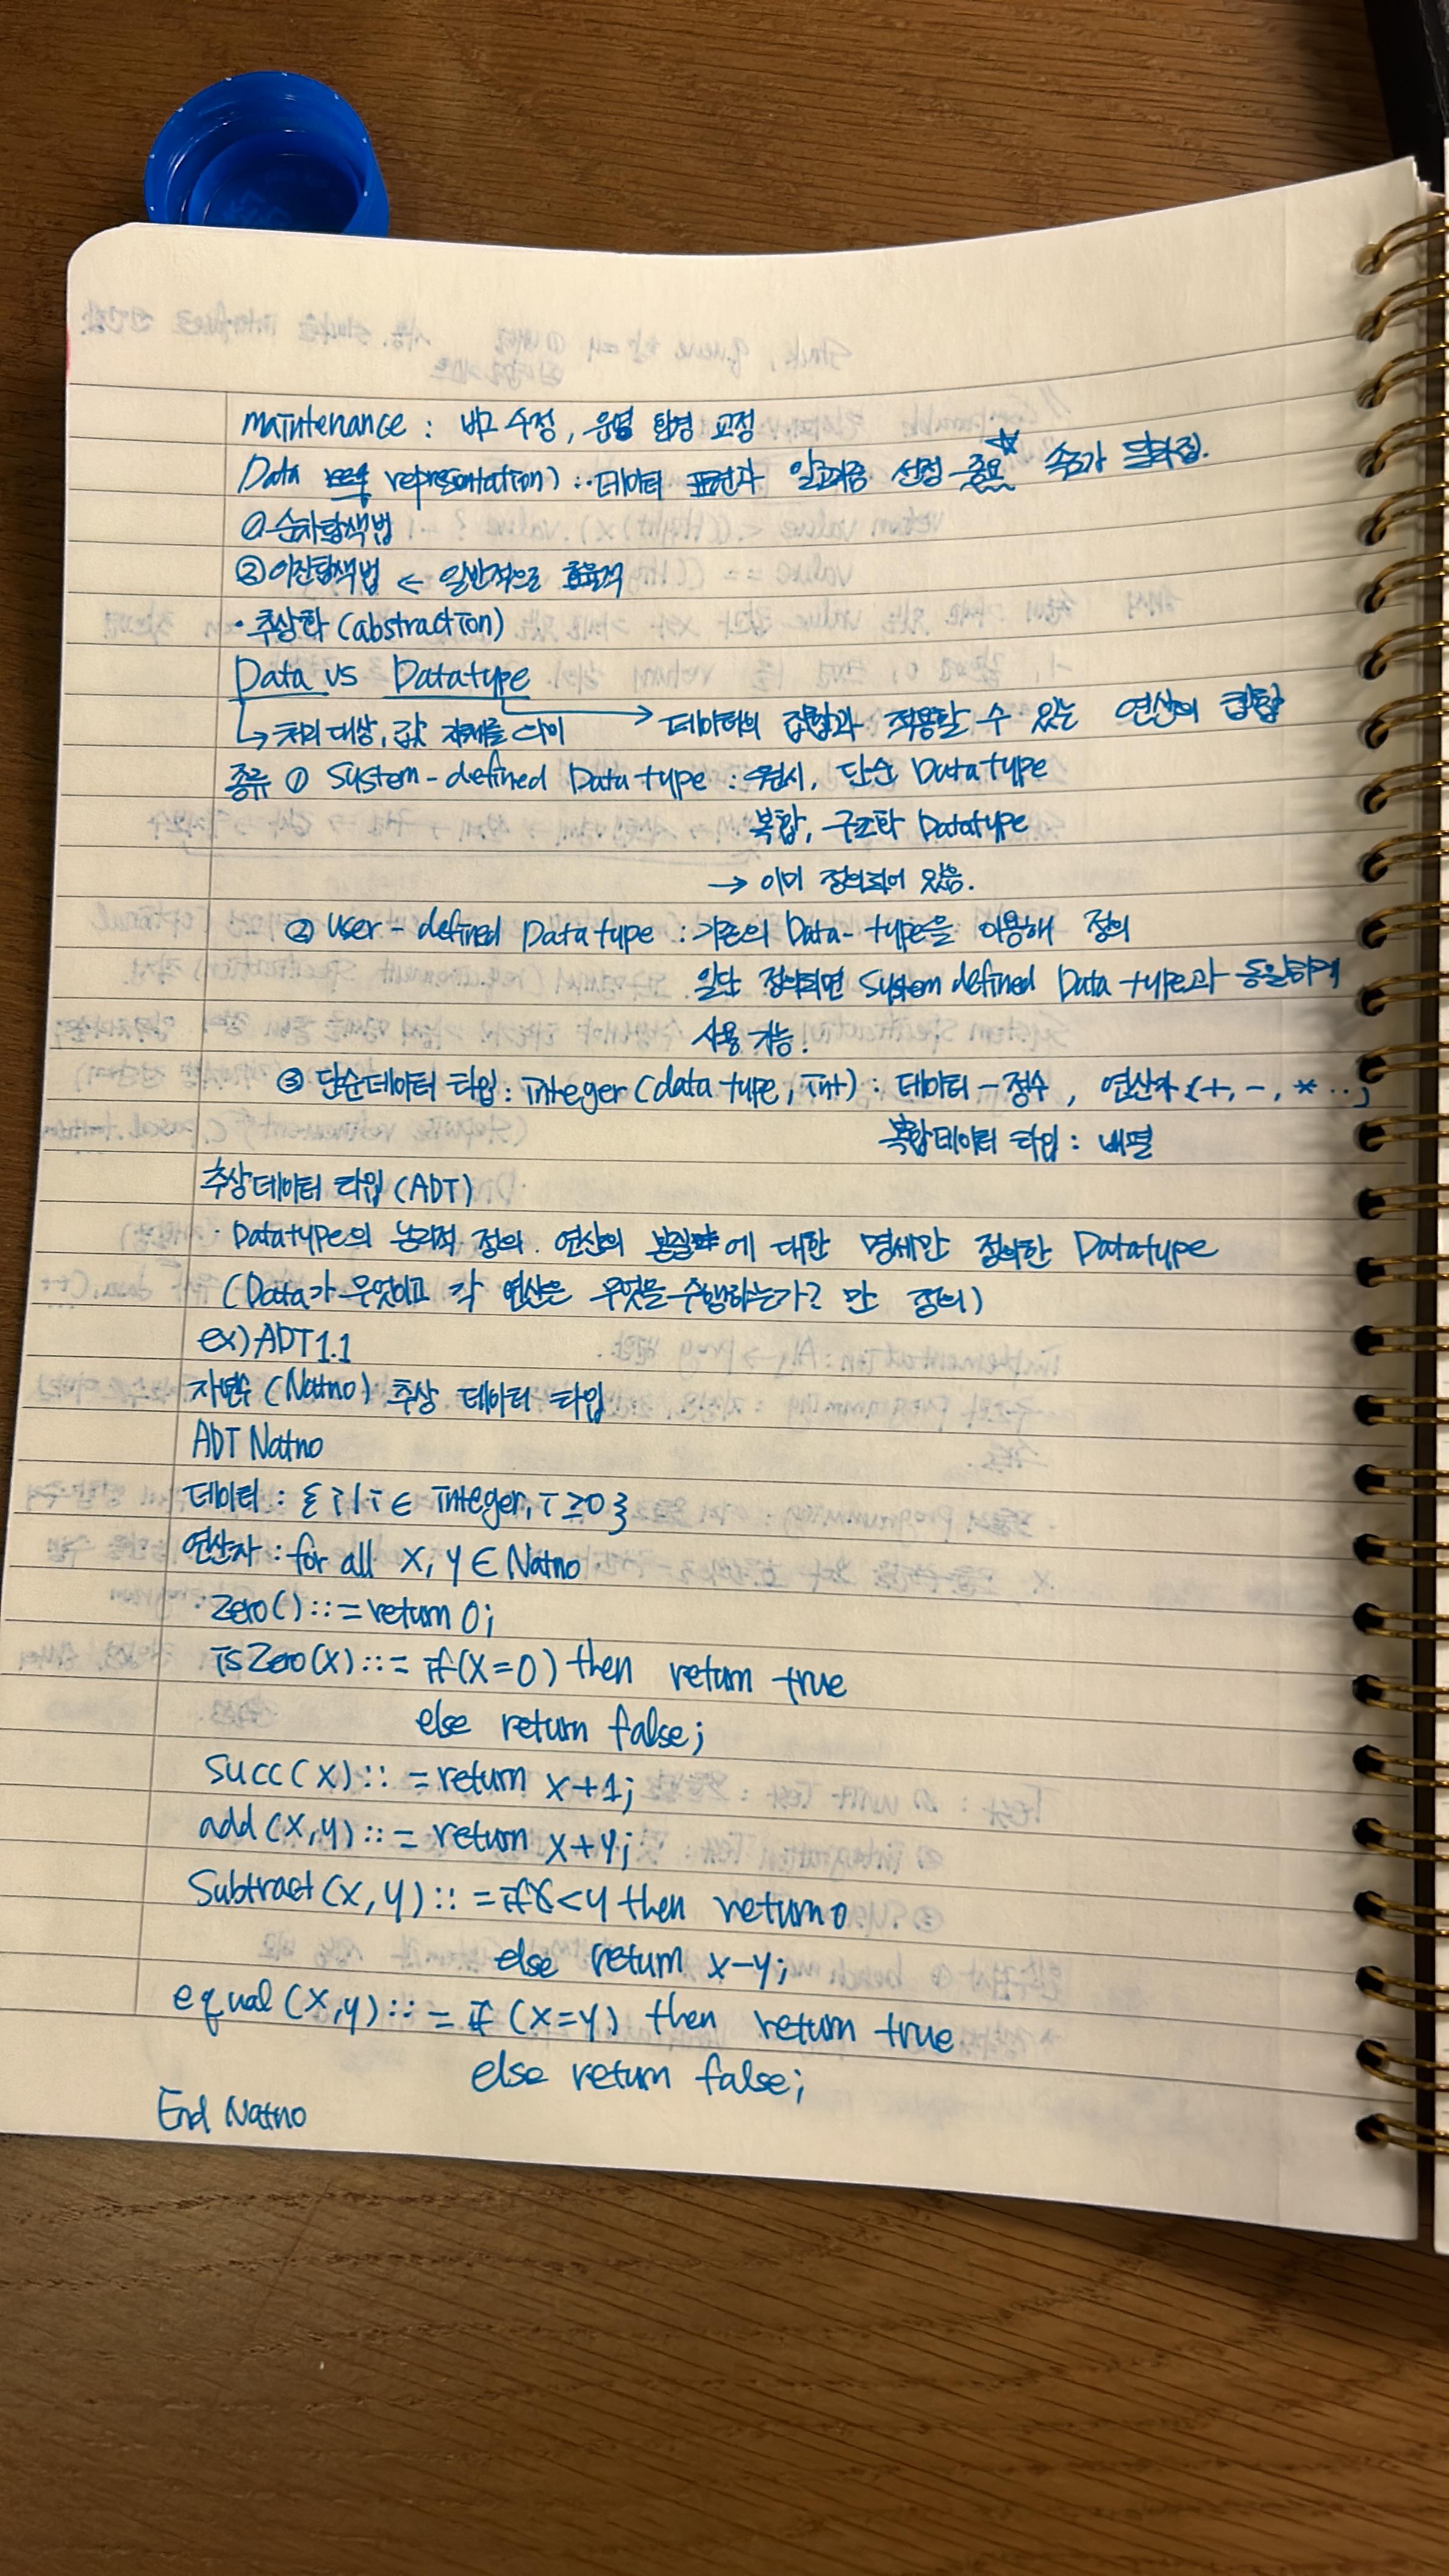 maintenance : 버그 수정, 운영 환경 교정
Data representation) : 데이터 표현과 알고리즘 선정 중요 속도가 달라짐.
① 순차탐색법
② 이진탐색법 ← 일반적으로 효율적
· 추상화 (abstraction)
Data vs Datatype
↳ 처리 대상, 값 자체를 의미 → 데이터의 집합과 적용할 수 있는 연산의 집합
종류 ① System-defined Data type : 원시, 단순 Datatype
복합, 구조화 Datatype
→ 이미 정의되어 있음.
② user-defined Data type : 기존의 Data-type을 이용해 정의
일단 정의되면 System defined Data type과 동일하게
사용 가능.
③ 단순데이터 타입 : integer (data type; int) : 데이터 - 정수, 연산자 (+, -, * ..)
복합데이터 타입 : 배열
추상데이터 타입 (ADT)
· Datatype의 논리적 정의. 연산의 본질에 대한 명세만 정의한 Datatype
(Data가 무엇이고 각 연산은 무엇을 수행하는가? 만 정의)
ex) ADT1.1
자연수 (Natno) 추상 데이터 타입
ADT Natno
데이터 : { i | i ∈ integer, i ≥ 0 }
연산자 : for all x, y ∈ Natno
Zero() ::= return 0;
isZero(x) ::= if(x=0) then return true
else return false;
Succ(x) ::= return x+1;
add(x,y) ::= return x+y;
Subtract(x,y) ::= if x<y then return 0
else return x-y;
equal(x,y) ::= if (x=y) then return true
else return false;
End Natno